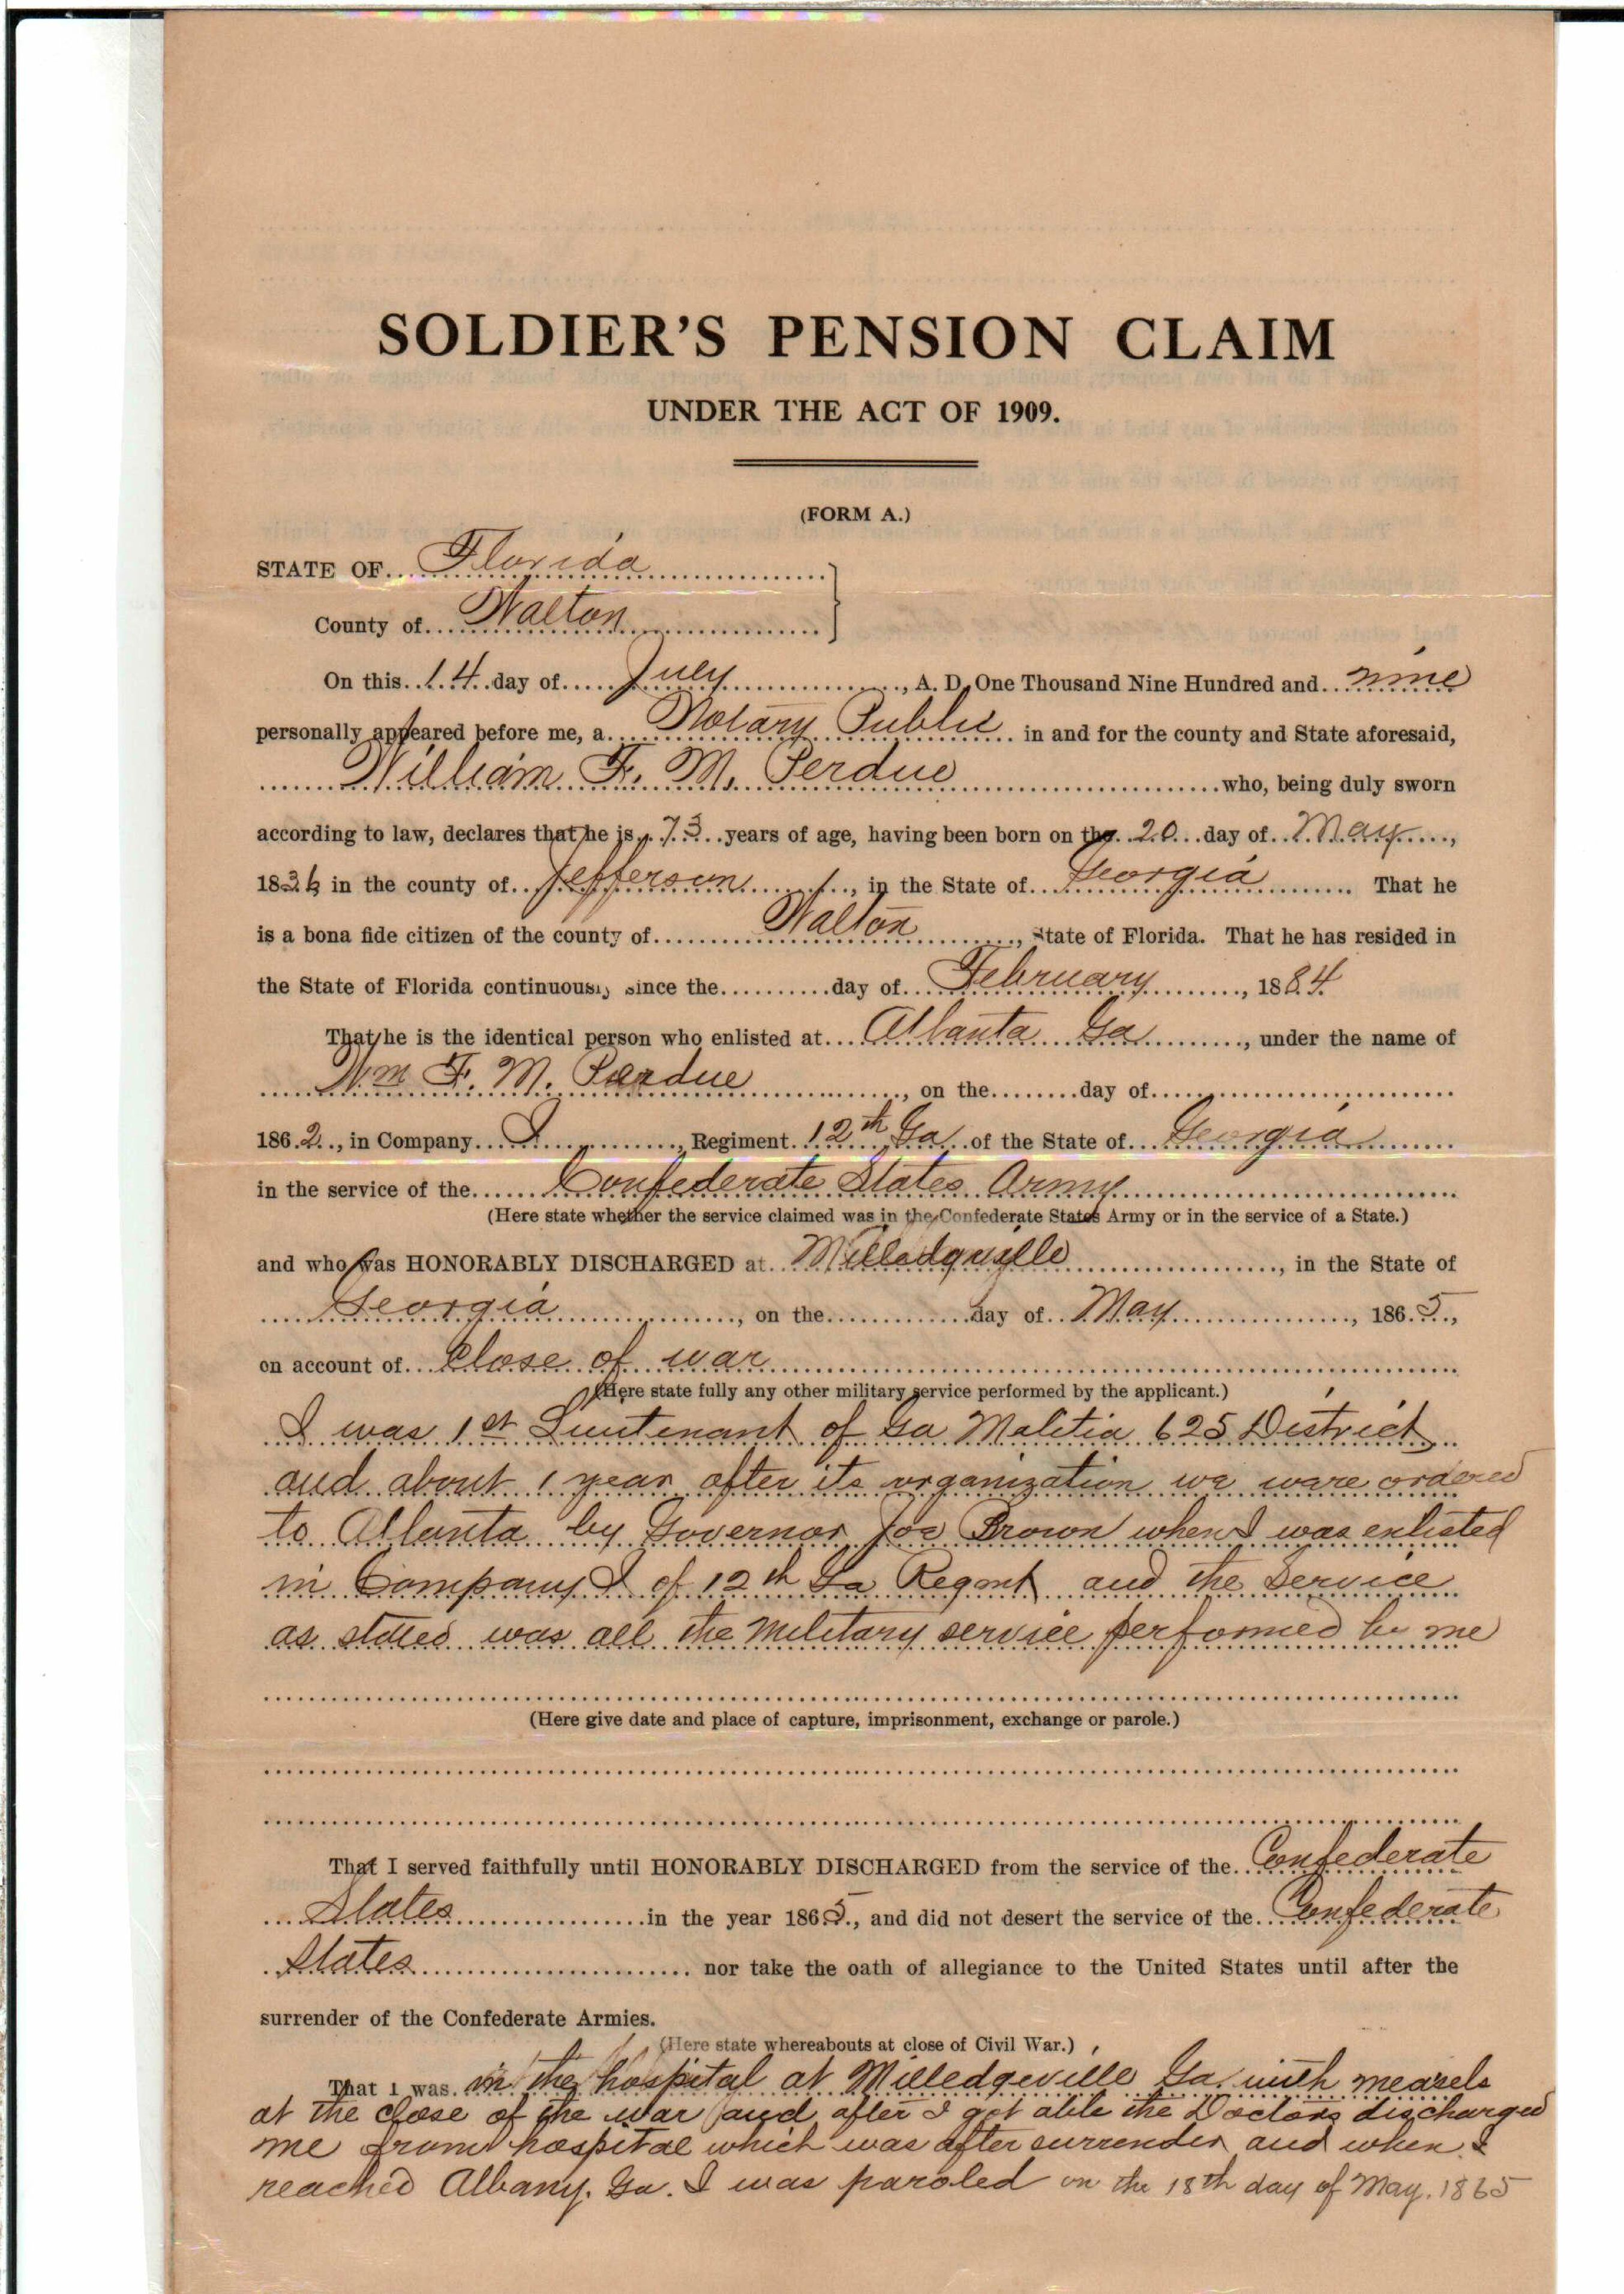 SOLDIER'S PENSION CLAIM
UNDER THE ACT OF 1909.
(FORM A.)
STATE OF Florida
County of Walton
On this 14 day of July, A. D. One Thousand Nine Hundred and nine
personally appeared before me, a Notary Public in and for the county and State aforesaid,
William F. M. Perdue who, being duly sworn
according to law, declares that he is 73 years of age, having been born on the 20 day of May,
1836 in the county of Jefferson, in the State of Georgia. That he
is a bona fide citizen of the county of Walton, State of Florida. That he has resided in
the State of Florida continuously since the day of February, 1884
That he is the identical person who enlisted at Atlanta Ga, under the name of
Wm F. M. Perdue, on the day of
1862, in Company I, Regiment 12th Ga of the State of Georgia
in the service of the Confederate States Army
(Here state whether the service claimed was in the Confederate States Army or in the service of a State.)
and who was HONORABLY DISCHARGED at Milledgville, in the State of
Georgia, on the day of May, 1865,
on account of Close of war
(Here state fully any other military service performed by the applicant.)
I was 1st Lieutenant of Ga Malitia 625 District
and about 1 year after its organization we were ordered
to Atlanta by Governor Joe Brown when I was enlisted
in Company I of 12th Ga Regmt and the Service
as stated was all the Military service performed by me
(Here give date and place of capture, imprisonment, exchange or parole.)
That I served faithfully until HONORABLY DISCHARGED from the service of the Confederate
States in the year 1865, and did not desert the service of the Confederate
States nor take the oath of allegiance to the United States until after the
surrender of the Confederate Armies.
(Here state whereabouts at close of Civil War.)
That I was in the hospital at Milledgeville Ga. with measels
at the close of the war and after I got able the Doctors discharged
me from hospital which was after surrender and when I
reached Albany. Ga. I was paroled on the 18th day of May. 1865